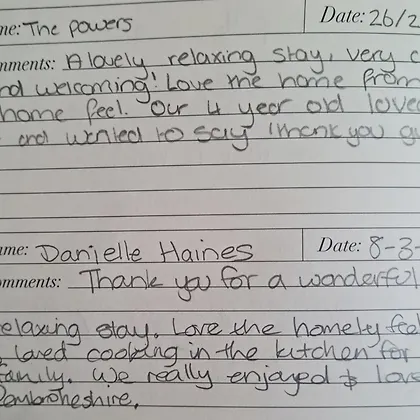 me: The Powers Date: 26/2
mments: A lovely relaxing stay, very c
nd welcoming! Love the home from
home feel. Our 4 year old love
and wanted to say 'thank you gu
ame: Danielle Haines Date: 8-3-
mments: Thank you for a wonderful
elaxing stay. Love the homely feel
loved cooking in the kitchen for
family. We really enjoyed & love
Pembrokeshire.